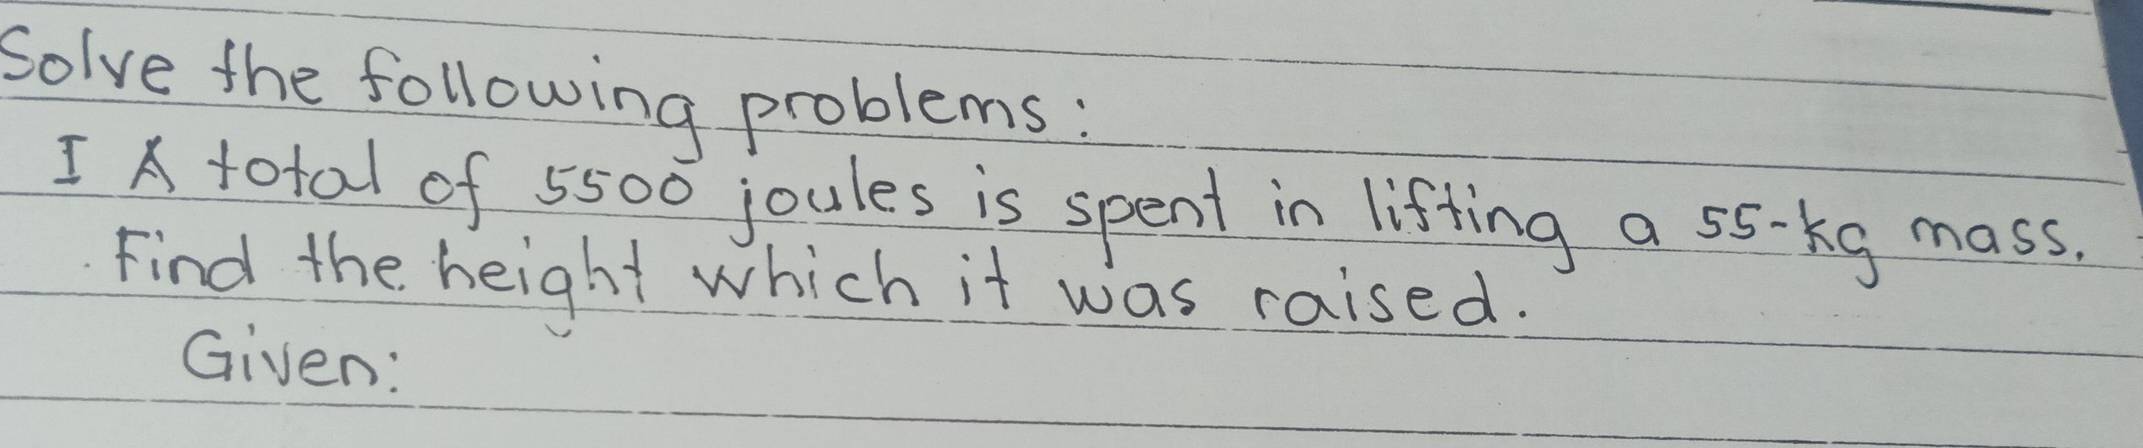 Solve the following problems:
I A total of 5500 joules is spent in lifting a 55-kg mass.
Find the height which it was raised.
Given: